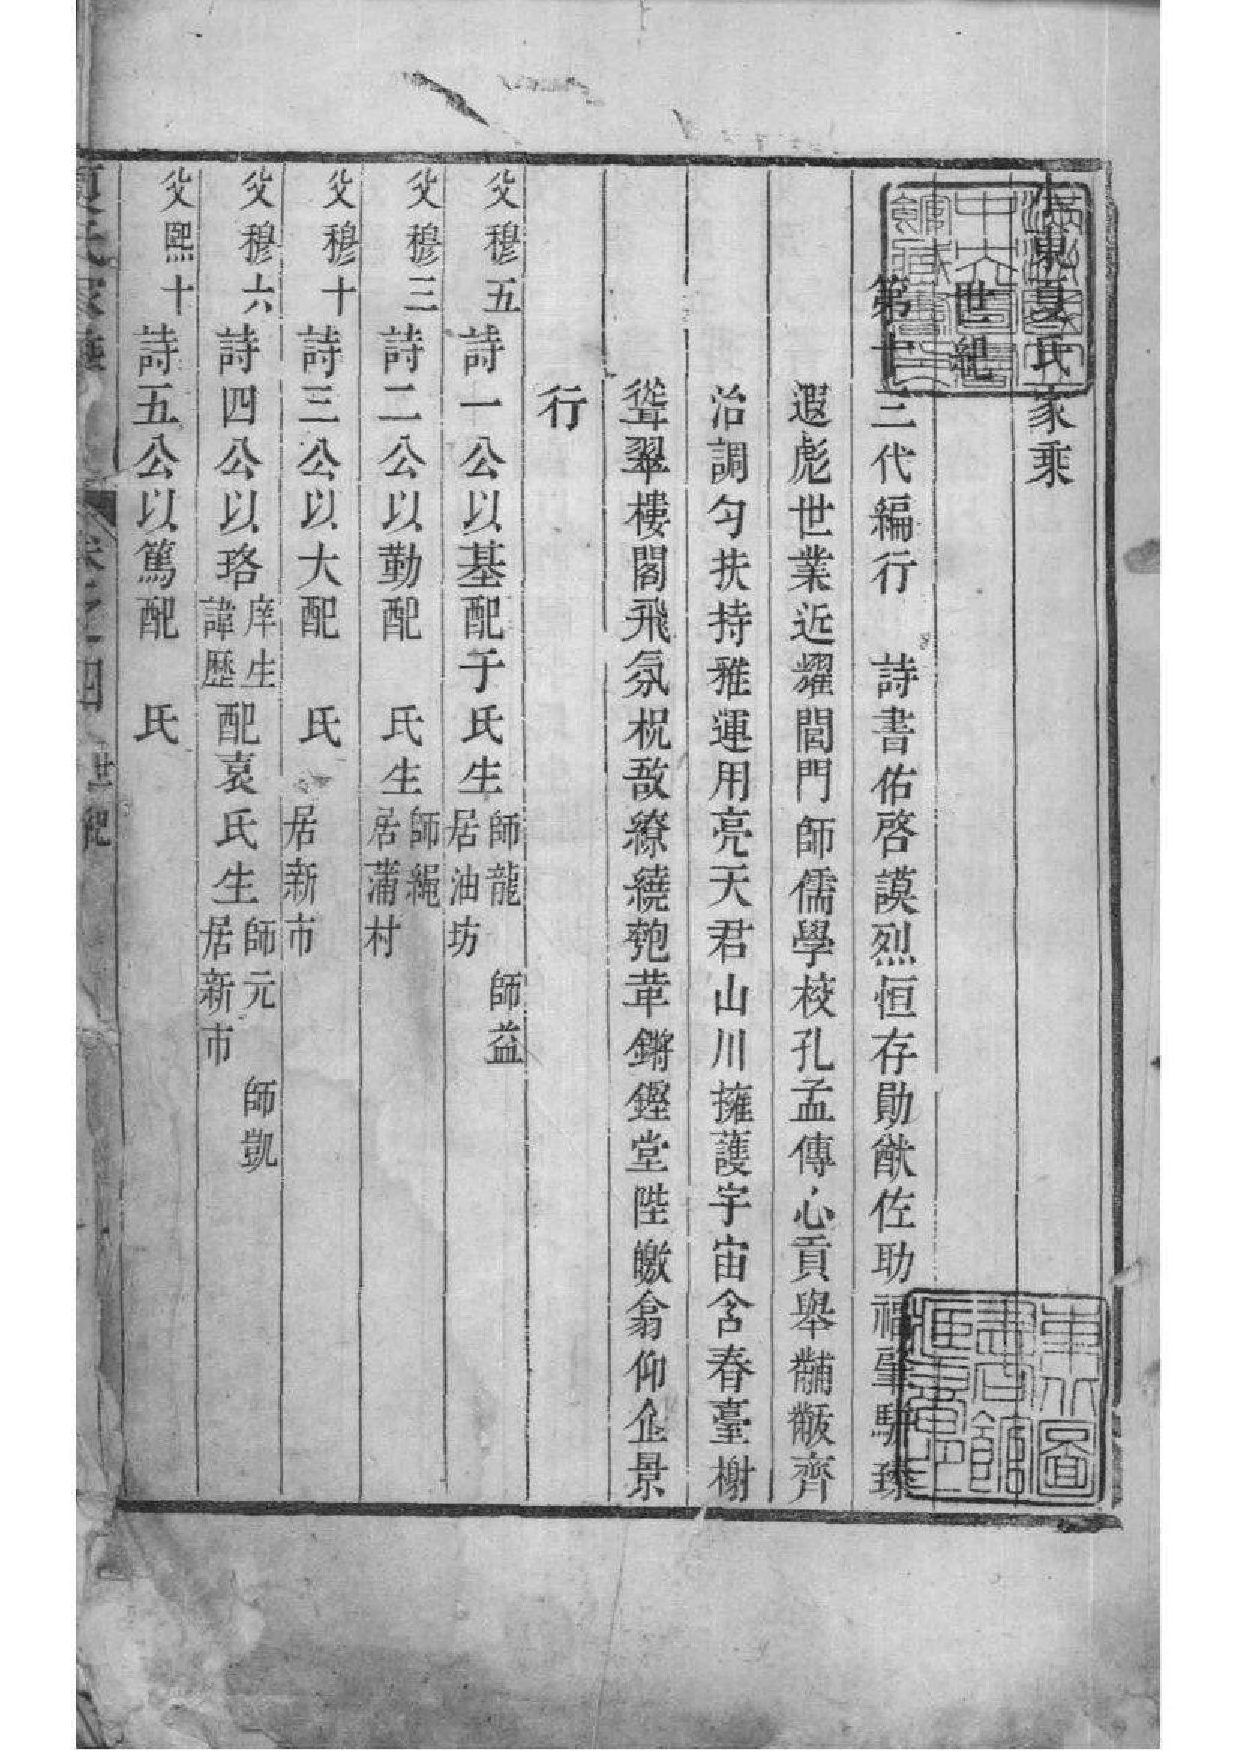 東夏氏家乘
世紀
第十三代編行　詩書佑啓謨烈恒存勛猷佐助福肇駢臻
遐彪世業近耀閭門師儒學校孔孟傳心貢舉黼黻齊
治調勻扶持雅運用亮天君山川擁護宇宙含春臺榭
聳翠樓閣飛氛柷敔繚繞匏革鏘鏗堂陛皦翕仰企景
行
父穆五詩一公以基配于氏生師龍　師益居油坊
父穆三詩二公以勤配　氏生師繩居蒲村
父穆十詩三公以大配　氏　居新市
父穆六詩四公以珞庠生諱歷配袁氏生師元　師凱居新市
父熙十詩五公以篤配　氏
夏氏家乘　卷之四　世紀